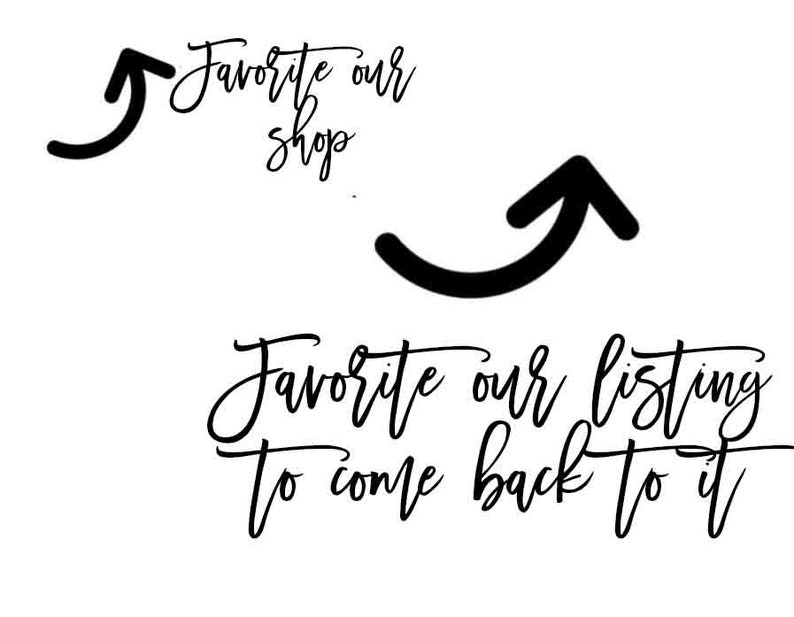 Favorite our
shop
Favorite our listing
to come back to it